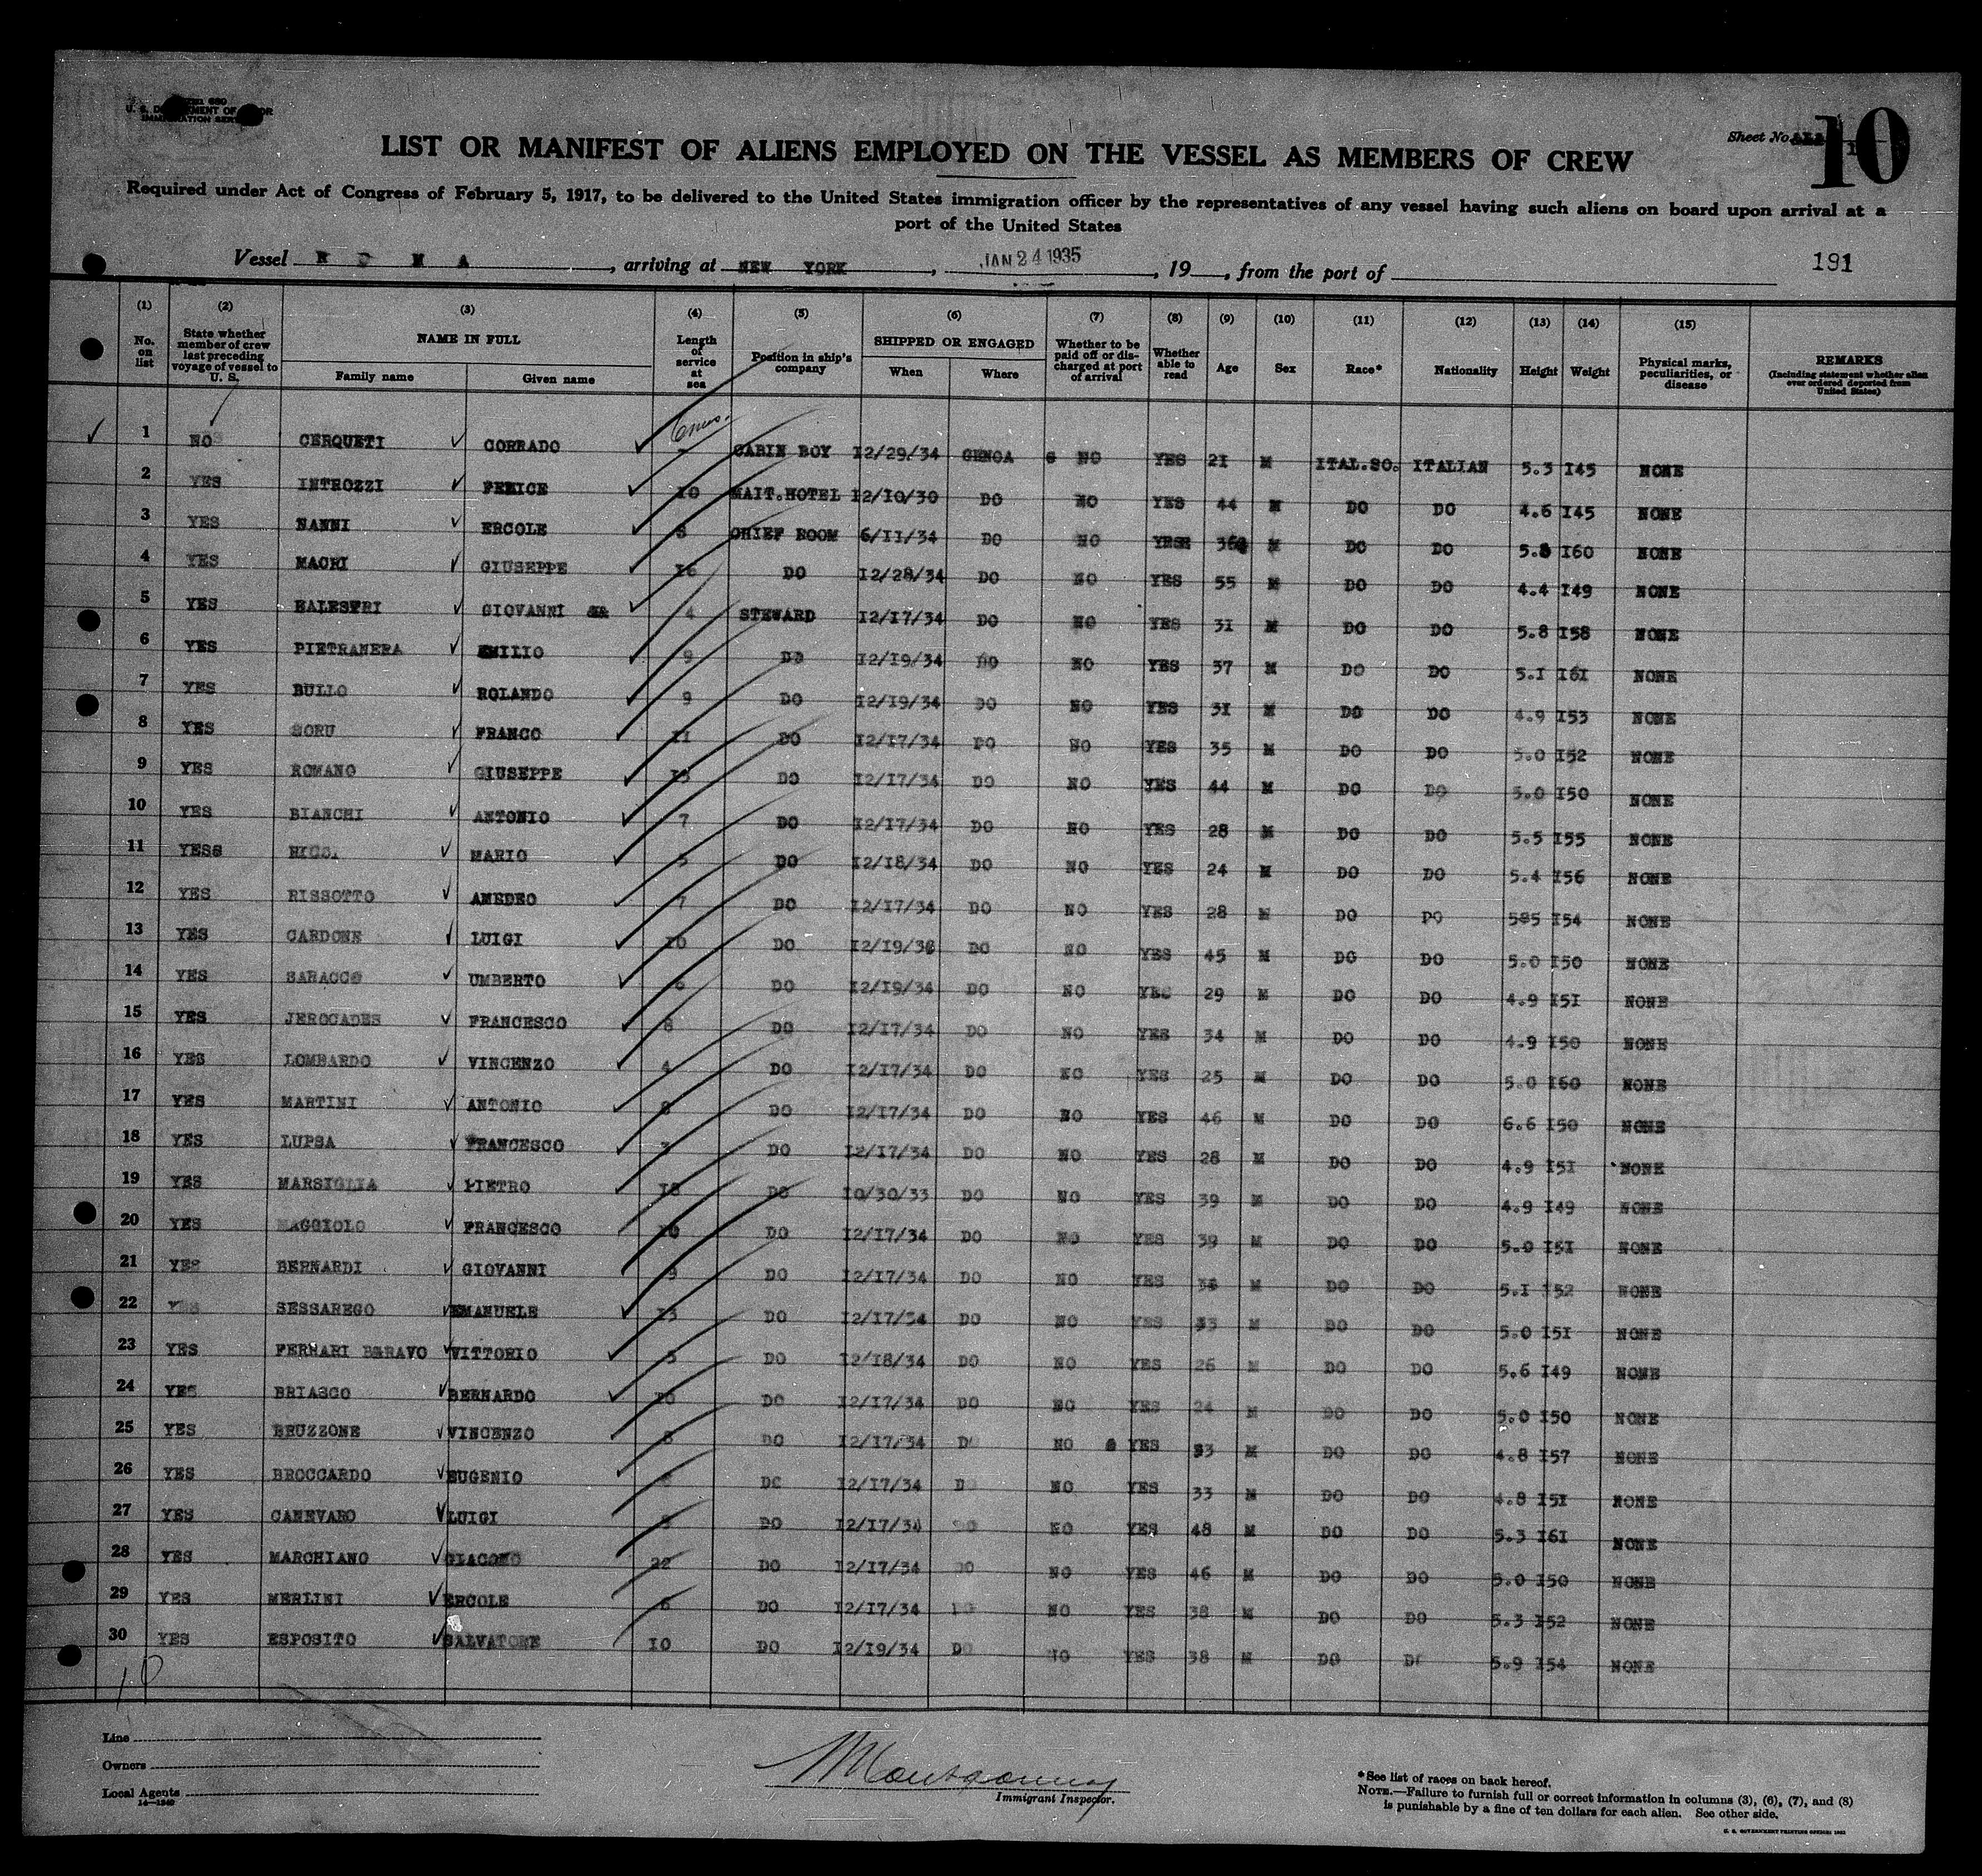 U. S. DEPARTMENT OF LABOR
IMMIGRATION SERVICE
Sheet No. 10
LIST OR MANIFEST OF ALIENS EMPLOYED ON THE VESSEL AS MEMBERS OF CREW
Required under Act of Congress of February 5, 1917, to be delivered to the United States immigration officer by the representatives of any vessel having such aliens on board upon arrival at a
port of the United States
Vessel ROMA, arriving at NEW YORK, JAN 24 1935, 19, from the port of 191
(1) (2) (3) (4) (5) (6) (7) (8) (9) (10) (11) (12) (13) (14) (15)
No. on list State whether member of crew last preceding voyage of vessel to U. S. NAME IN FULL Family name Given name Length of service at sea Position in ship's company SHIPPED OR ENGAGED When Where Whether to be paid off or discharged at port of arrival Whether able to read Age Sex Race* Nationality Height Weight Physical marks, peculiarities, or disease REMARKS (Including statement whether alien ever ordered deported from United States)
1 NO CERQUETI CORRADO 6 mos. CABIN BOY 12/29/34 GENOA NO YES 21 M ITAL.SO. ITALIAN 5.3 145 NONE
2 YES INTROZZI FENICE 10 MAIT.HOTEL 12/10/30 DO NO YES 44 M DO DO 4.6 145 NONE
3 YES NANNI ERCOLE 8 CHIEF ROOM 6/11/34 DO NO YES 36 M DO DO 5.8 160 NONE
4 YES MACRI GIUSEPPE 16 DO 12/28/34 DO NO YES 55 M DO DO 4.4 149 NONE
5 YES BALESTRI GIOVANNI 4 STEWARD 12/17/34 DO NO YES 31 M DO DO 5.8 158 NONE
6 YES PIETRANERA EMILIO 9 DO 12/19/34 DO NO YES 37 M DO DO 5.1 161 NONE
7 YES BULLO ROLANDO 9 DO 12/19/34 DO NO YES 31 M DO DO 4.9 153 NONE
8 YES SORU FRANCO 11 DO 12/17/34 DO NO YES 35 M DO DO 5.0 152 NONE
9 YES ROMANO GIUSEPPE 15 DO 12/17/34 DO NO YES 44 M DO DO 5.0 150 NONE
10 YES BIANCHI ANTONIO 7 DO 12/17/34 DO NO YES 28 M DO DO 5.5 155 NONE
11 YESS MARIO 5 DO 12/18/34 DO NO YES 24 M DO DO 5.4 156 NONE
12 YES RISSOTTO AMEDEO 7 DO 12/17/34 DO NO YES 28 M DO DO 585 154 NONE
13 YES CARDONE LUIGI 10 DO 12/19/36 DO NO YES 45 M DO DO 5.0 150 NONE
14 YES SARACCO UMBERTO 6 DO 12/19/34 DO NO YES 29 M DO DO 4.9 151 NONE
15 YES JEROCADES FRANCESCO 8 DO 12/17/34 DO NO YES 34 M DO DO 4.9 150 NONE
16 YES LOMBARDO VINCENZO 4 DO 12/17/34 DO NO YES 25 M DO DO 5.0 160 NONE
17 YES MARTINI ANTONIO 8 DO 12/17/34 DO NO YES 46 M DO DO 6.6 150 NONE
18 YES LUPSA FRANCESCO 3 DO 12/17/34 DO NO YES 28 M DO DO 4.9 151 NONE
19 YES MARSIGLIA PIETRO 18 DO 10/30/33 DO NO YES 39 M DO DO 4.9 149 NONE
20 YES MAGGIOLO FRANCESCO 10 DO 12/17/34 DO NO YES 39 M DO DO 5.0 151 NONE
21 YES BERNARDI GIOVANNI 9 DO 12/17/34 DO NO YES M DO DO 5.1 152 NONE
22 YES SESSAREGO EMANUELE 13 DO 12/17/34 DO NO YES 33 M DO DO 5.0 151 NONE
23 YES FERRARI BRAVO VITTORIO 5 DO 12/18/34 DO NO YES 26 M DO DO 5.6 149 NONE
24 YES BRIASCO BERNARDO 10 DO 12/17/34 DO NO YES 24 M DO DO 5.0 150 NONE
25 YES BRUZZONE VINCENZO 8 DO 12/17/34 DO NO YES 33 M DO DO 4.8 157 NONE
26 YES BROCCARDO EUGENIO DO 12/17/34 DO NO YES 33 M DO DO 4.8 151 NONE
27 YES CANEVARO LUIGI DO 12/17/34 DO NO YES 48 M DO DO 5.3 161 NONE
28 YES MARCHIANO GIACOMO 22 DO 12/17/34 DO NO YES 46 M DO DO 5.0 150 NONE
29 YES MERLINI ERCOLE 6 DO 12/17/34 DO NO YES 38 M DO DO 5.3 152 NONE
30 YES ESPOSITO SALVATORE 10 DO 12/19/34 DO NO YES 38 M DO DO 5.9 154 NONE
10
Line
Owners
Local Agents
14—1240
Montgomery
Immigrant Inspector.
*See list of races on back hereof.
NOTE.—Failure to furnish full or correct information in columns (3), (6), (7), and (8)
is punishable by a fine of ten dollars for each alien. See other side.